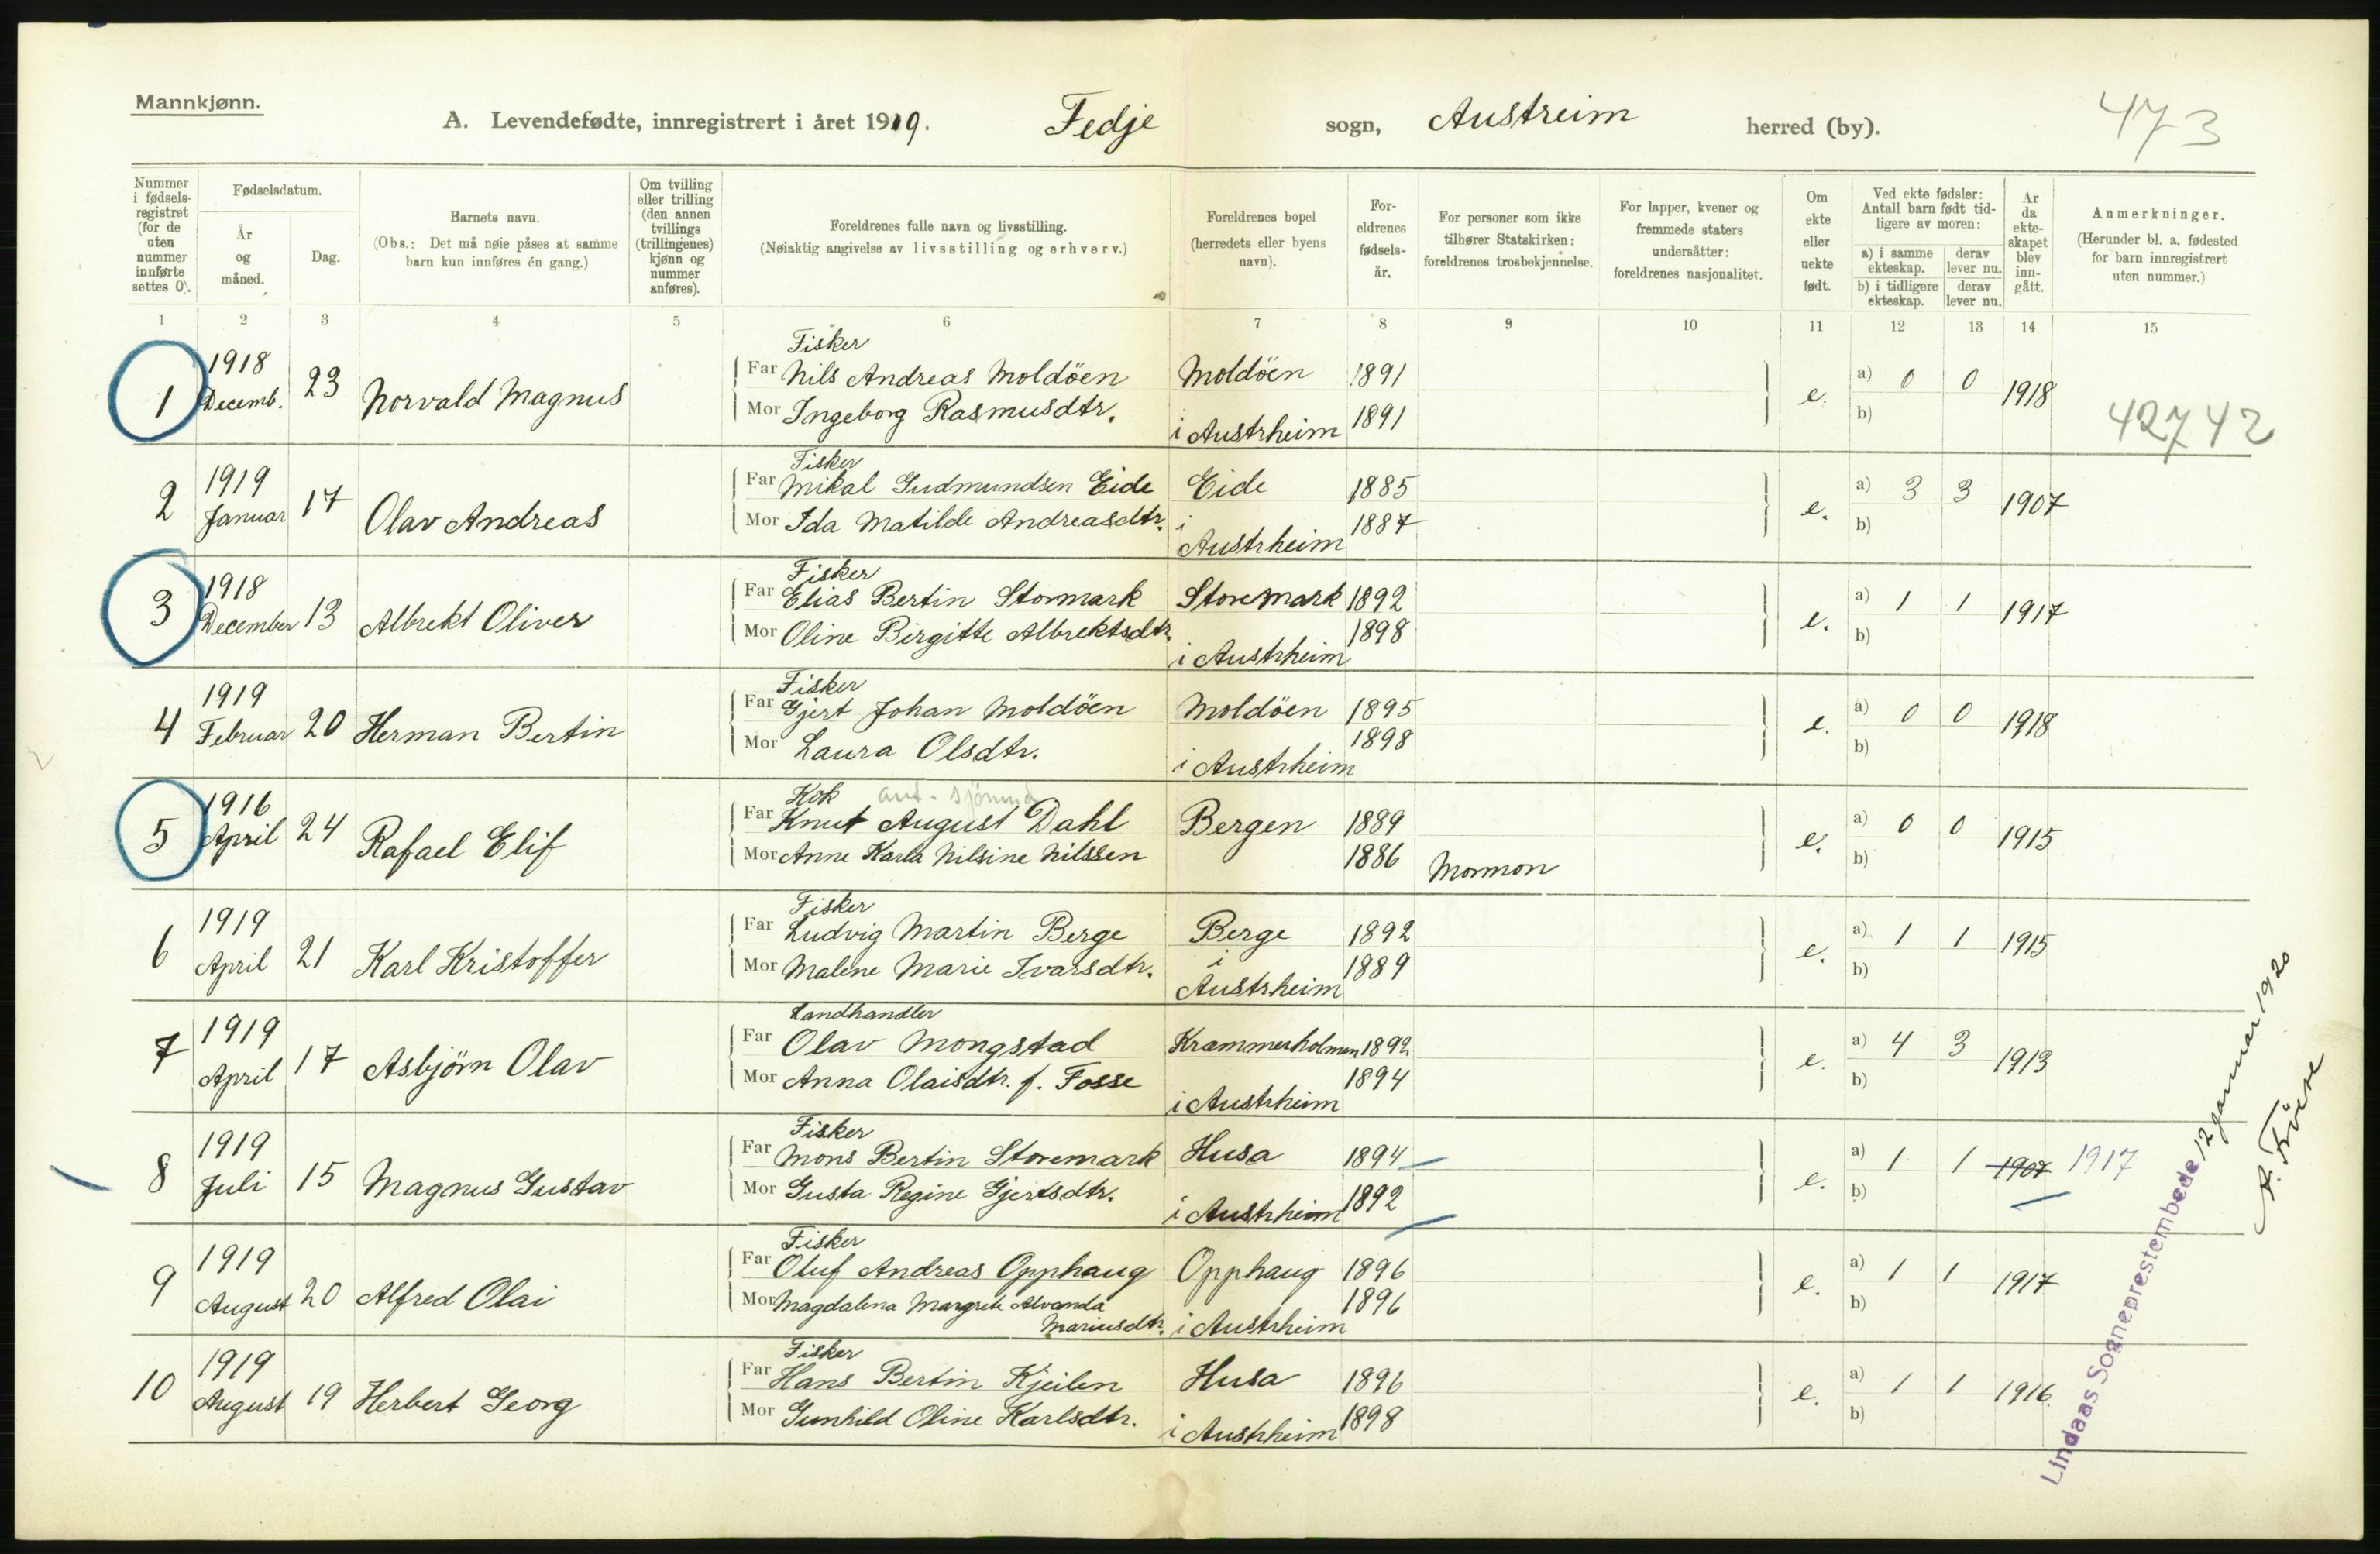 Mannkjønn.
A. Levendefødte, innregistrert i året 1919. Fedje sogn, Austreim herred (by).
473
Nummer i fødselsregistret (for de uten nummer innførte settes 0).
Fødselsdatum.
År og måned.
Dag.
Barnets navn.
(Obs.: Det må nøie påses at samme barn kun innføres én gang.)
Om tvilling eller trilling (den annen tvillings (trillingenes) kjønn og nummer anføres).
Foreldrenes fulle navn og livsstilling.
(Nøiaktig angivelse av livsstilling og erhverv.)
Foreldrenes bopel (herredets eller byens navn).
Foreldrenes fødselsår.
For personer som ikke tilhører Statskirken: foreldrenes trosbekjennelse.
For lapper, kvener og fremmede staters undersåtter: foreldrenes nasjonalitet.
Om ekte eller uekte født.
Ved ekte fødsler: Antall barn født tidligere av moren:
a) i samme ekteskap. derav lever nu.
b) i tidligere ekteskap. derav lever nu.
År da ekteskapet blev inngått.
Anmerkninger.
(Herunder bl. a. fødested for barn innregistrert uten nummer.)
1 2 3 4 5 6 7 8 9 10 11 12 13 14 15
Fisker
1 1918 Decemb. 23 Norvald Magnus Far Nils Andreas Moldöen Moldöen 1891 e. a) 0 0 1918
Mor Ingeborg Rasmusdtr. i Austrheim 1891 b)
42742
Fisker
2 1919 Januar 17 Olav Andreas Far Mikal Gudmundsen Eide Eide 1885 e. a) 3 3 1907
Mor Ida Matilde Andreasdtr. i Austrheim 1887 b)
Fisker
3 1918 December 13 Albrekt Oliver Far Elias Bertin Stormark Storemark 1892 e. a) 1 1 1917
Mor Oline Birgitte Albrektsdtr. i Austrheim 1898 b)
Fisker
4 1919 Februar 20 Herman Bertin Far Gjert Johan Moldöen Moldöen 1895 e. a) 0 0 1918
Mor Laura Olsdtr. i Austrheim 1898 b)
Kok
5 1916 April 24 Rafael Elif Far Knut August Dahl Bergen 1889 e. a) 0 0 1915
Mor Anne Karla Nilsine Nilssen 1886 Mormon b)
Fisker
6 1919 April 21 Karl Kristoffer Far Ludvig Martin Berge Berge 1892 e. a) 1 1 1915
Mor Malene Marie Ivarsdtr. i Austrheim 1889 b)
Landhandler
7 1919 April 17 Asbjörn Olav Far Olav Mongstad Krammerholmen 1892 e. a) 4 3 1913
Mor Anna Olaisdtr. f. Fosse i Austrheim 1894 b)
Fisker
8 1919 Juli 15 Magnus Gustav Far Mons Bertin Storemark Husa 1894 e. a) 1 1 1907 1917
Mor Gusta Regine Gjertsdtr. i Austrheim 1892 b)
Fisker
9 1919 August 20 Alfred Olai Far Oluf Andreas Opphaug Opphaug 1896 e. a) 1 1 1917
Mor Magdalena Margrete Alvanda Mariusdtr. i Austrheim 1896 b)
Fisker
10 1919 August 19 Herbert Georg Far Hans Bertin Kjeilen Husa 1896 e. a) 1 1 1916
Mor Gunhild Oline Karlsdtr. i Austrheim 1898 b)
Lindaas Sogneprestembede 12 januar 1920